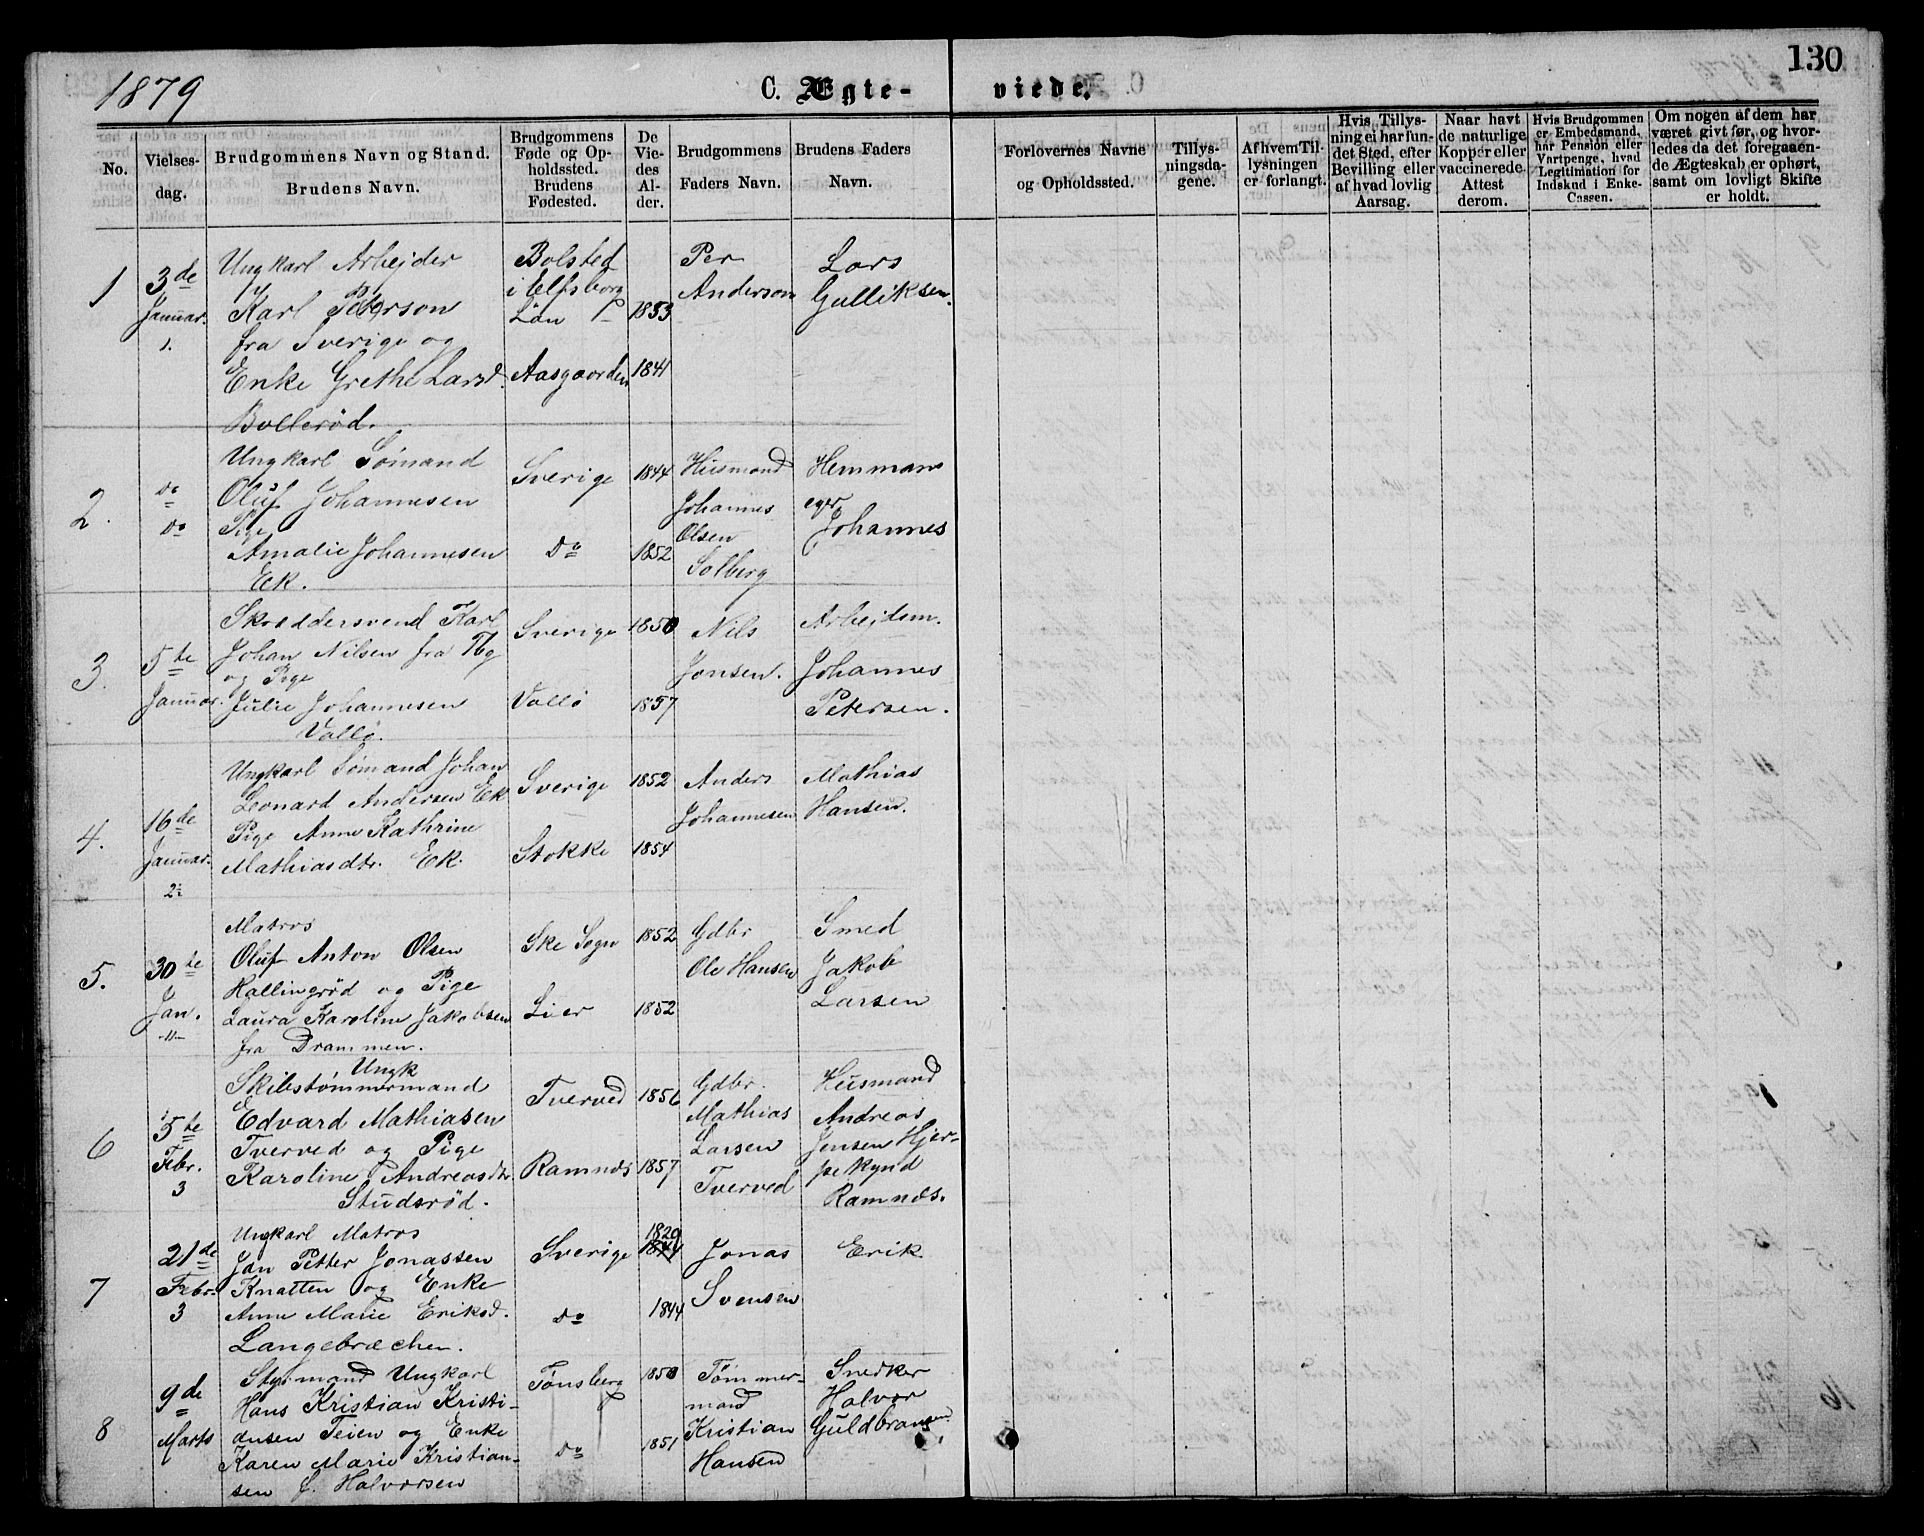 1879
C. Ægte-
viede.
130
No.
Vielses-
dag.
Brudgommens Navn og Stand.
Brudens Navn.
Brudgommens
Føde og Op-
holdssted.
Brudens
Fødested.
De
Vie-
des
Al-
der.
Brudgommens
Faders Navn.
Brudens Faders
Navn.
Forlovernes Navne
og Opholdssted.
Tillys-
ningsda-
gene.
Af hvem Til-
lysningen
er forlangt.
Hvis Tillys-
ning ei har fun-
det Sted, efter
Bevilling eller
af hvad lovlig
Aarsag.
Naar havt
de naturlige
Kopper eller
vaccinerede.
Attest
derom.
Hvis Brudgommen
er Embedsmand,
har Pension eller
Vartpenge, hvad
Legitimation for
Indskud i Enke-
Cassen.
Om nogen af dem har
været givt før, og hvor-
ledes da det foregaaen-
de Ægteskab er ophørt,
samt om lovligt Skifte
er holdt.
1
3de
Januar.
1.
Ungkarl Arbejder
Karl Peterson
fra Sverige og
Enke Grethe Larsd.
Bollerød.
Bolsted
i Elfsborg
Län
Aasgaarden
1853
1841
Per
Anderson
Lars
Gulliksen.
2.
Do
Do
Ungkarl Sömand
Oluf Johannesen
Pige
Amalie Johannesen
Ek.
Sverige
Do
1844
1852
Husmand
Johannes
Olsen
Solberg
Hemmans
eger
Johannes
3.
5te
Januar.
Skræddersvend Karl
Johan Nilsen fra Tbg
og Pige
Julie Johannesen
Vallö.
Sverige
Vallö
1850
1857
Nils
Jonsen.
Arbejdsm.
Johannes
Petersen.
4.
16de
Januar.
2
Ungkarl Sömand Johan
Leonard Andersen Ek
Pige Anne Kathrine
Mathiasdtr. Ek.
Sverige
Stokke
1852
1854
Anders
Johannesen
Mathias
Hansen.
5.
30te
Jan.
-"-
Matros
Oluf Anton Olsen
Kallingrød og Pige
Laura Karoline Jakobsen
fra Drammen.
Ske Sogn
Lier
1852
1852
Gdbr
Ole Hansen
Smed
Jakob
Larsen
6
5te
Febr.
3
Ungk
Skibstømmermand
Edvard Mathiasen
Tverved og Pige
Karoline Andreasdtr
Studsrød.
Tverved
Ramnæs
1856
1857
Gdbr.
Mathias
Larsen
Tverved
Husmand
Andreas
Jensen Hjer-
pekynd
Ramnæs.
7
21de
Febr.
3
Ungkarl Matros
Jan Petter Jonassen
Knatten og Enke
Anne Marie Eriksd.
Langebræchen.
Sverige
Do
1829
1844
1844
Jonas
Svensen
Erik.
8
9de
Marts
Styrmand Ungkarl
Hans Kristian Kristi-
ansen Teien og Enke
Karen Marie Kristian-
sen f. Halvorsen
Tønsberg
Do
1850
1851
Tømmer-
mand
Kristian
Hansen
Snedker
Halvor
Guldbransen